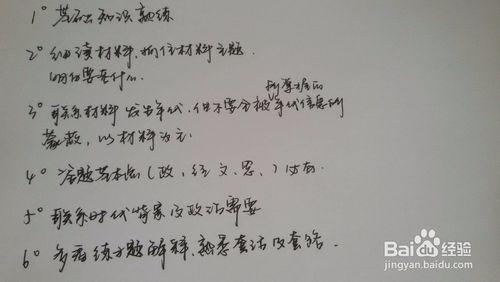 1° 基础知识熟练
2° 细读材料,抓住材料主题.
明白要表什么.
所掌握的
3° 联系材料发生年代,但不要全被年代信息所
蒙蔽,以材料为主.
4° 答题基本点(政、经、文、思、)方面.
5° 联系时代特征及政治需要
6° 多看练习题解释,熟悉套话及套路.
Baidu经验
jingyan.baidu.com